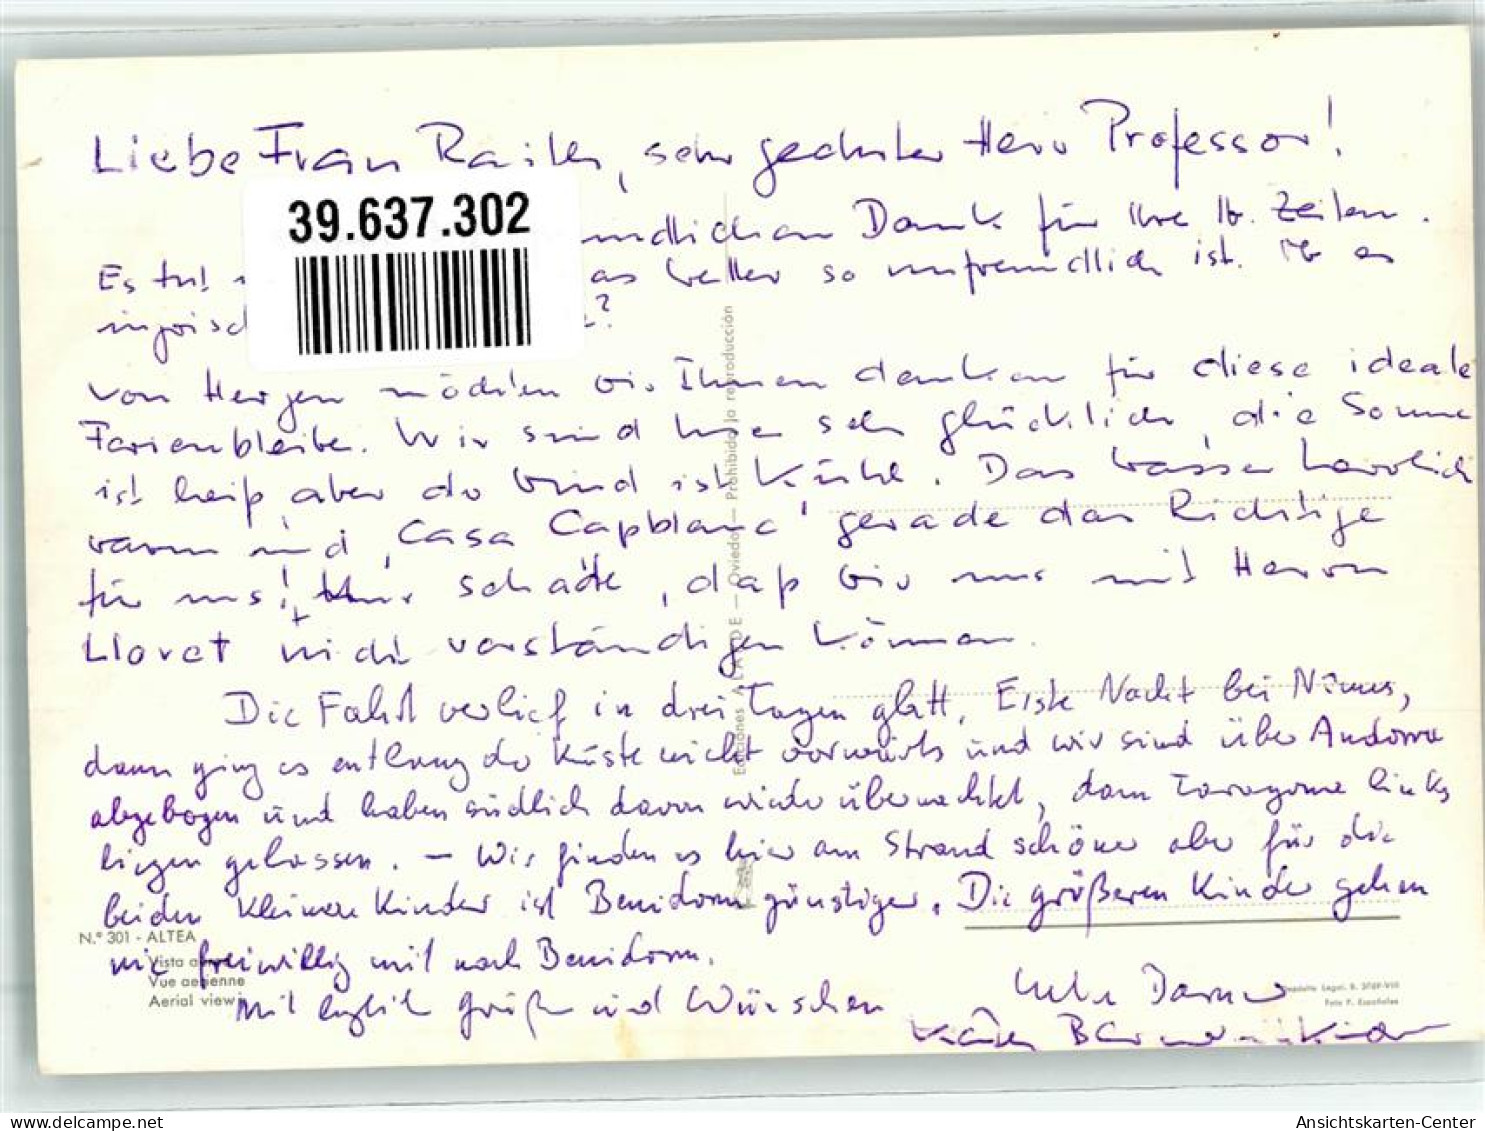 Liebe Frau Raith, sehr geehrter Herr Professor!
39.637.302
Dank für Ihre lb. Zeilen.
Es tut so unfreundlich ist. Ob es
?
Von Herzen möchten wir Ihnen danken für diese ideale
Ferienbleibe. Wir sind hier sehr glücklich, die Sonne
ist heiß, aber der Wind ist kühl. Das Wasser herrlich
warm und "Casa Capblanc" gerade das Richtige
für uns! Nur schade, daß wir uns mit Herrn
Lloret nicht verständigen können.
Die Fahrt verlief in drei Tagen glatt. Erste Nacht bei Nimes,
dann ging es entlang der Küste nicht vorwärts und wir sind über Andorra
abgebogen und haben südlich davon wieder übernachtet, dann Tarragona links
liegen gelassen. – Wir finden es hier am Strand schöner aber für die
beiden kleinen Kinder ist Benidorm günstiger. Die größeren Kinder gehen
nie freiwillig mit nach Benidorm.
Mit Grüßen und Wünschen
N.º 301 - ALTEA
Vista aérea
Vue aérienne
Aerial view
Ediciones ALARDE — Oviedo — Prohibida la reproducción
Depósito Legal. B.
Foto P. Españoles
Ansichtskarten-Center